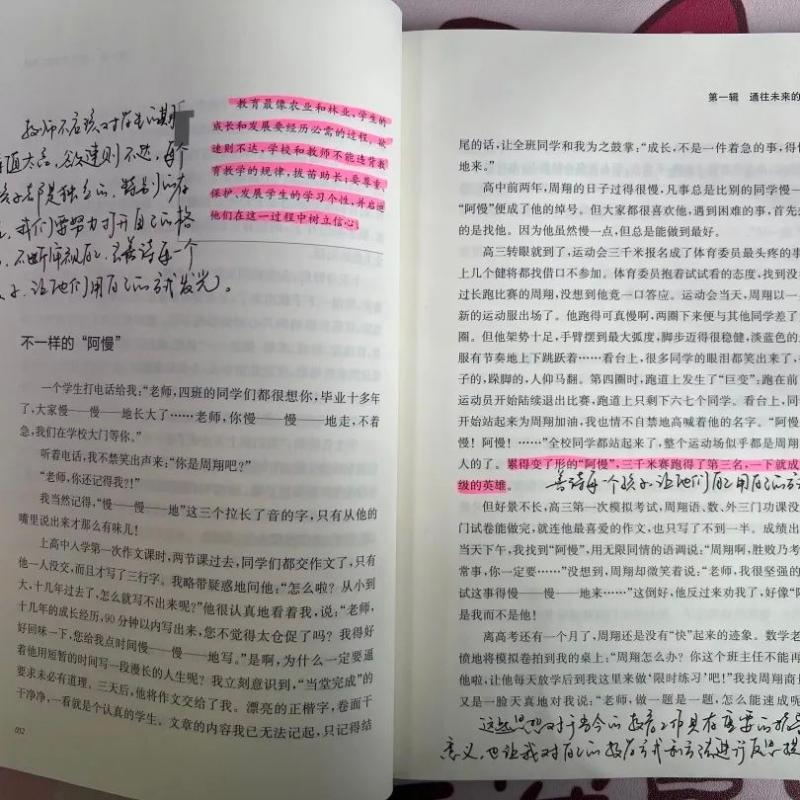 教育最像农业和林业，学生的
成长和发展要经历必需的过程，欲
速则不达，学校和教师不能违背教
育教学的规律，拔苗助长；要尊重、
保护、发展学生的学习个性，并启迪
他们在这一过程中树立信心。
教师不应该对学生的期
值太高，欲速则不达，每个
孩子都是独立的，特别的存
，我们要努力打开自己的格
，不断审视自己，善待每一个
孩子，让他们用自己的方式发光。
不一样的“阿慢”
一个学生打电话给我：“老师，四班的同学们都很想你，毕业十多年
了，大家慢——慢——地长大了……老师，你慢——慢——地走，不着
急，我们在学校大门等你。”
听着电话，我不禁笑出声来：“你是周翔吧？”
“老师，你还记得我？！”
我当然记得，“慢——慢——地”这三个拉长了音的字，只有从他的
嘴里说出来才那么有味儿！
上高中入学第一次作文课时，两节课过去，同学们都交作文了，只有
他一人没交，而且才写了三行字。我略带疑惑地问他：“怎么啦？从小到
大，十几年过去了，怎么就写不出来呢？”他很认真地看着我，说：“老师，
十几年的成长经历，90分钟以内写出来，您不觉得太仓促了吗？我得好
好回味一下，您给我点时间慢——慢——地写。”是啊，为什么一定要逼
着他用短暂的时间写一段漫长的人生呢？我立刻意识到，“当堂完成”的
要求未必有道理。三天后，他将作文交给了我。漂亮的正楷字，卷面干
干净净，一看就是个认真的学生。文章的内容我已无法记起，只记得结
032
第一辑 通往未来的
尾的话，让全班同学和我为之鼓掌：“成长，不是一件着急的事，得慢
地来。”
高中前两年，周翔的日子过得很慢，凡事总是比别的同学慢一
“阿慢”便成了他的绰号。但大家都很喜欢他，遇到困难的事，首先想
的是找他。因为他虽然慢一点，但总是能做到最好。
高三转眼就到了，运动会三千米报名成了体育委员最头疼的事
上几个健将都找借口不参加。体育委员抱着试试看的态度，找到没
过长跑比赛的周翔，没想到他竟一口答应。运动会当天，周翔以一
新的运动服出场了。他跑得可真慢啊，两圈下来便与其他同学差了
圈。但他架势十足，手臂摆到最大弧度，脚步迈得很稳健，淡蓝色的
服有节奏地上下跳跃着……看台上，很多同学的眼泪都笑出来了，
子的，跺脚的，人仰马翻。第四圈时，跑道上发生了“巨变”：跑在前
运动员开始陆续退出比赛，跑道上只剩下六七个同学。看台上，同
开始站起来为周翔加油，我也情不自禁地高喊着他的名字。“阿
慢！阿慢！……”全校同学都站起来了，整个运动场似乎都是周翔
人的了。累得变了形的“阿慢”，三千米赛跑得了第三名，一下就成
级的英雄。
善待每一个孩子，让他们自己用自己的方
但好景不长，高三第一次模拟考试，周翔语、数、外三门功课没
门试卷能做完，就连他最喜爱的作文，也只写了不到一半。成绩出
当天下午，我找到“阿慢”，用无限同情的语调说：“周翔啊，胜败乃
常事，你一定要……”没想到，周翔却微笑着说：“老师，我很坚强的
试这事得慢——慢——地来……”这倒好，他反过来劝我了，好像“
是我而不是他！
离高考还有一个月了，周翔还是没有“快”起来的迹象。数学老
愤地将模拟卷拍到我的桌上：“周翔怎么办？你这个班主任不能再
他啦，让他每天放学后到我这里来做‘限时练习’吧！”我找周翔商
又是一脸天真地对我说：“老师，做一题是一题，怎么能速成呢
这些思想对于当今的教育工作具有重要的指导
意义，也让我对自己的教育方式和方法进行反思